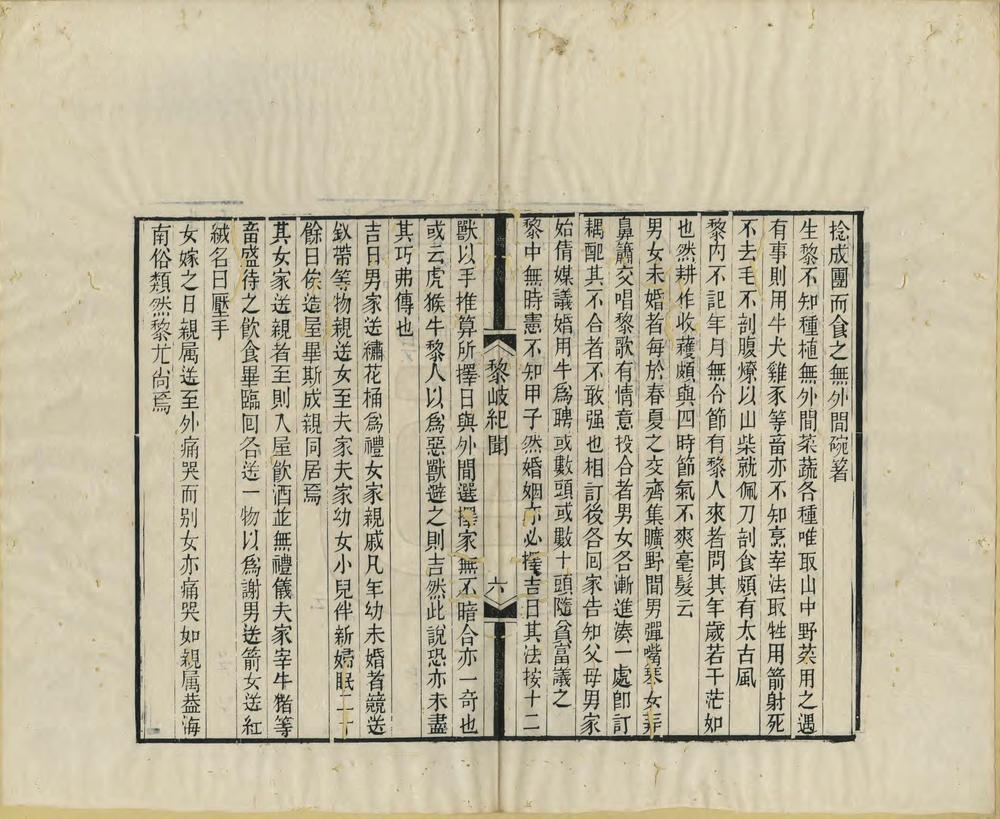 捻成團而食之無外間碗箸
生黎不知種植無外間菜蔬各種唯取山中野菜用之遇
有事則用牛犬雞豕等畜亦不知烹宰法取牲用箭射死
不去毛不剖腹燎以山柴就佩刀割食頗有太古風
黎內不記年月無令節有黎人來者問其年歲若干茫如
也然耕作收穫頗與四時節氣不爽毫髮云
男女未婚者每於春夏之交齊集曠野間男彈嘴琴女弄
鼻簫交唱黎歌有情意投合者男女各漸進湊一處即訂
耦配其不合者不敢强也相訂後各回家告知父母男家
始倩媒議婚用牛爲聘或數頭或數十頭隨貧富議之
黎中無時憲不知甲子然婚姻亦必擇吉日其法按十二
黎岐紀聞
六
獸以手推算所擇日與外間選擇家無不暗合亦一奇也
或云虎猴牛黎人以爲惡獸避之則吉然此說恐亦未盡
其巧弗傳也
吉日男家送繡花桶爲禮女家親戚凡年幼未婚者競送
釵帶等物親送女至夫家夫家幼女小兒伴新婦眠二十
餘日俟造屋畢斯成親同居焉
其女家送親者至則入屋飲酒並無禮儀夫家宰牛猪等
畜盛待之飲食畢臨回各送一物以爲謝男送箭女送紅
絨名曰壓手
女嫁之日親属送至外痛哭而别女亦痛哭如親属葢海
南俗類然黎尤尚焉